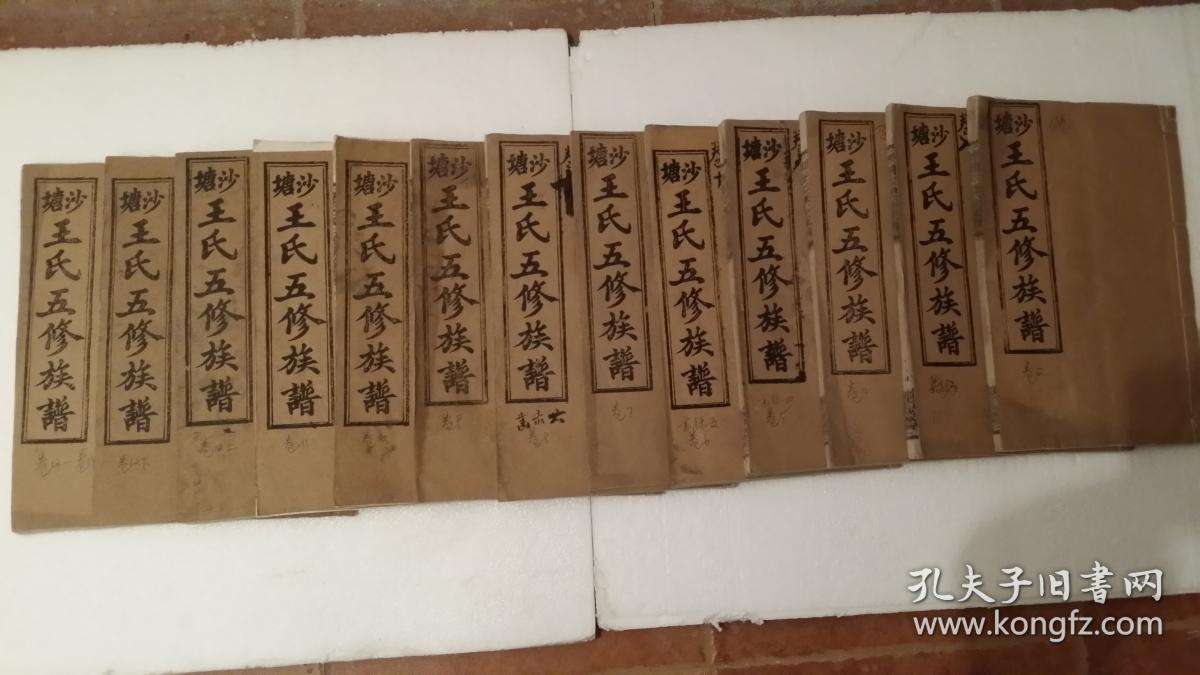 沙塘
王氏五修族譜
卷2
沙塘
王氏五修族譜
沙塘
王氏五修族譜
沙塘
王氏五修族譜
沙塘
王氏五修族譜
卷6
沙塘
王氏五修族譜
卷7
沙塘
王氏五修族譜
卷8
沙塘
王氏五修族譜
沙塘
王氏五修族譜
沙塘
王氏五修族譜
沙塘
王氏五修族譜
沙塘
王氏五修族譜
沙塘
王氏五修族譜
孔夫子旧书网
www.kongfz.com